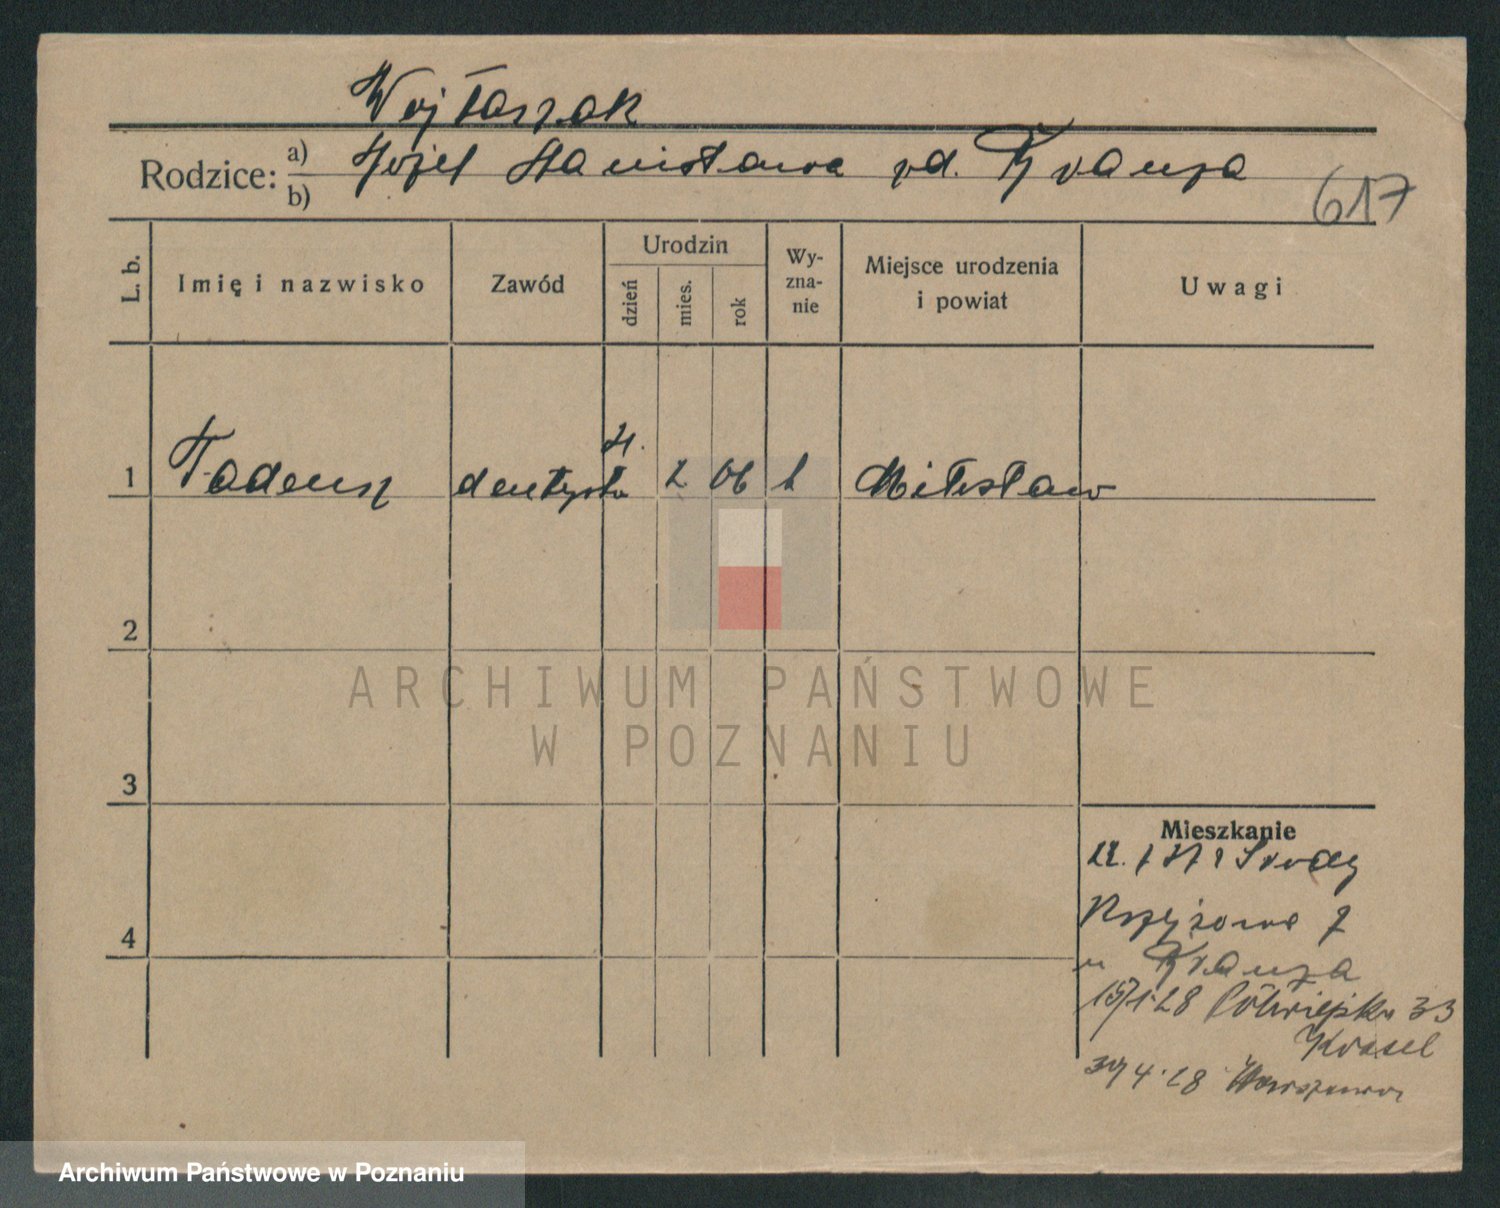 Wojtaszak
Rodzice: a) b) Józef Stanisława zd. Kranza
617
L. b.
Imię i nazwisko
Zawód
Urodzin
dzień
mies.
rok
Wy-
zna-
nie
Miejsce urodzenia
i powiat
Uwagi
1 Tadeusz dentysta 2 06 Miłosław
2
3
4
ARCHIWUM PAŃSTWOWE
W POZNANIU
Mieszkanie
Środy
7
u Kranza
15/1.28 Półwiejska 33
4.28 Warszawa
Archiwum Państwowe w Poznaniu